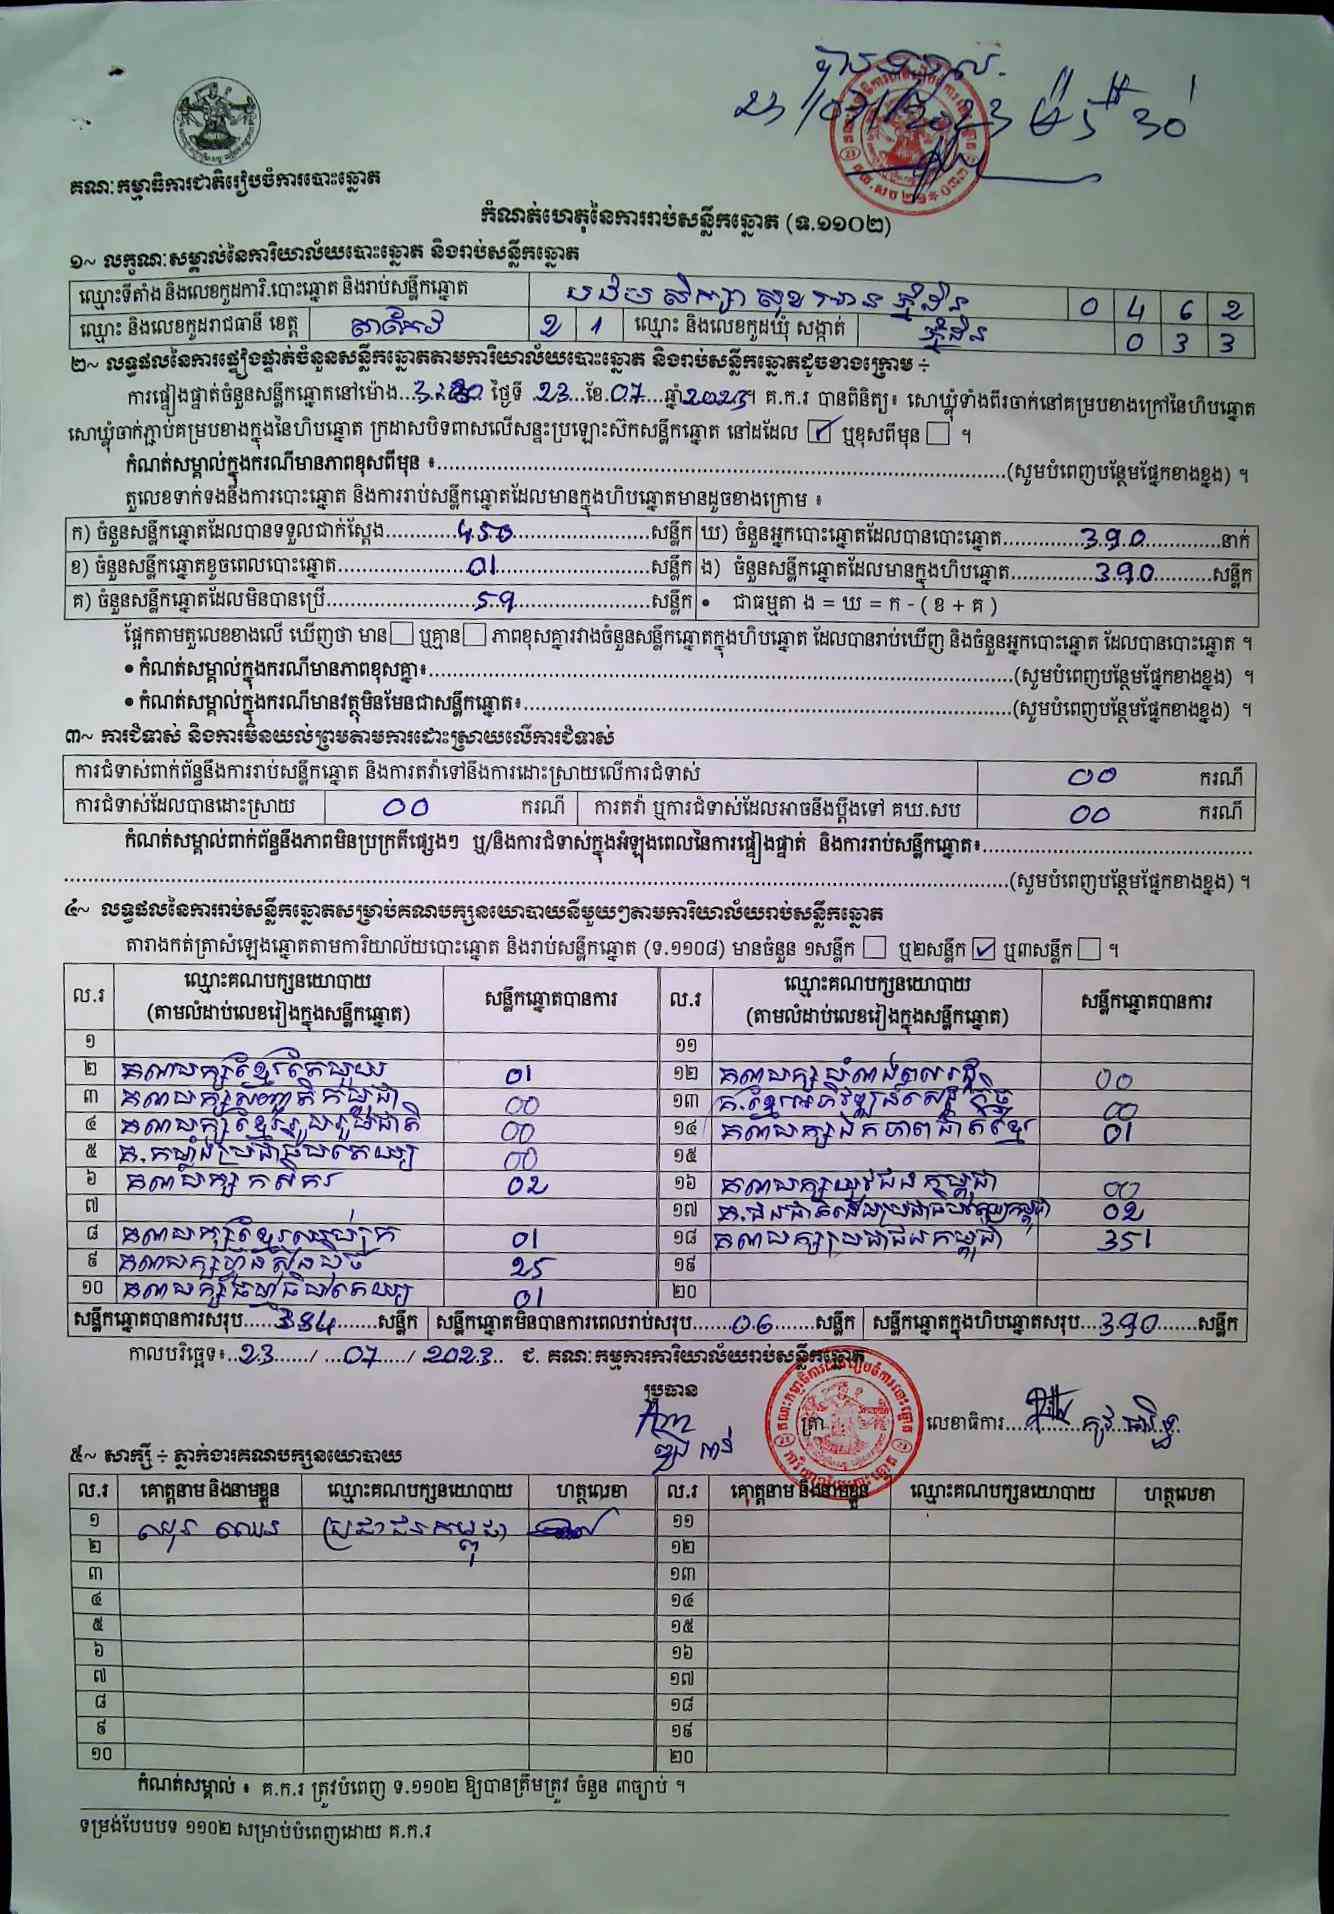 បានទទួល
23/07/2023 ម៉ 5 30
គណៈកម្មាធិការជាតិរៀបចំការបោះឆ្នោត
កំណត់ហេតុនៃការរាប់សន្លឹកឆ្នោត (ទ.១១០២)
១~ លក្ខណៈសម្គាល់នៃការិយាល័យបោះឆ្នោត និងរាប់សន្លឹកឆ្នោត
ឈ្មោះទីតាំង និងលេខកូដការិ.បោះឆ្នោត និងរាប់សន្លឹកឆ្នោត 0 4 6 2
ឈ្មោះ និងលេខកូដរាជធានី ខេត្ត តាកែវ 2 1 ឈ្មោះ និងលេខកូដឃុំ សង្កាត់ ភ្នំដិន 0 3 3
២~ លទ្ធផលនៃការផ្ទៀងផ្ទាត់ចំនួនសន្លឹកឆ្នោតតាមការិយាល័យបោះឆ្នោត និងរាប់សន្លឹកឆ្នោតដូចខាងក្រោម ÷
ការផ្ទៀងផ្ទាត់ចំនួនសន្លឹកឆ្នោតនៅម៉ោង... ថ្ងៃទី .23...ខែ.07....ឆ្នាំ2023។ គ.ក.រ បានពិនិត្យ៖ សោឃ្លុំទាំងពីរចាក់នៅគម្របខាងក្រៅនៃហិបឆ្នោត
សោឃ្លុំចាក់ភ្ជាប់គម្របខាងក្នុងនៃហិបឆ្នោត ក្រដាសបិទពាសលើសន្ទះប្រឡោះស៊កសន្លឹកឆ្នោត នៅដដែល ☑ ឬខុសពីមុន ☐ ។
កំណត់សម្គាល់ក្នុងករណីមានភាពខុសពីមុន ៖....(សូមបំពេញបន្ថែមផ្នែកខាងខ្នង) ។
តួលេខទាក់ទងនឹងការបោះឆ្នោត និងការរាប់សន្លឹកឆ្នោតដែលមានក្នុងហិបឆ្នោតមានដូចខាងក្រោម ៖
ក) ចំនួនសន្លឹកឆ្នោតដែលបានទទួលជាក់ស្តែង....450....សន្លឹក ឃ) ចំនួនអ្នកបោះឆ្នោតដែលបានបោះឆ្នោត....390....នាក់
ខ) ចំនួនសន្លឹកឆ្នោតខូចពេលបោះឆ្នោត....01....សន្លឹក ង) ចំនួនសន្លឹកឆ្នោតដែលមានក្នុងហិបឆ្នោត....390....សន្លឹក
គ) ចំនួនសន្លឹកឆ្នោតដែលមិនបានប្រើ....59....សន្លឹក • ជាធម្មតា ង = ឃ = ក - ( ខ + គ )
ផ្អែកតាមតួលេខខាងលើ ឃើញថា មាន☐ ឬគ្មាន☐ ភាពខុសគ្នារវាងចំនួនសន្លឹកឆ្នោតក្នុងហិបឆ្នោត ដែលបានរាប់ឃើញ និងចំនួនអ្នកបោះឆ្នោត ដែលបានបោះឆ្នោត ។
• កំណត់សម្គាល់ក្នុងករណីមានភាពខុសគ្នា៖....(សូមបំពេញបន្ថែមផ្នែកខាងខ្នង) ។
• កំណត់សម្គាល់ក្នុងករណីមានវត្ថុមិនមែនជាសន្លឹកឆ្នោត៖....(សូមបំពេញបន្ថែមផ្នែកខាងខ្នង) ។
៣~ ការជំទាស់ និងការមិនយល់ព្រមតាមការដោះស្រាយលើការជំទាស់
ការជំទាស់ពាក់ព័ន្ធនឹងការរាប់សន្លឹកឆ្នោត និងការតវ៉ាទៅនឹងការដោះស្រាយលើការជំទាស់ 00 ករណី
ការជំទាស់ដែលបានដោះស្រាយ 00 ករណី ការតវ៉ា ឬការជំទាស់ដែលអាចនឹងប្តឹងទៅ គឃ.សប 00 ករណី
កំណត់សម្គាល់ពាក់ព័ន្ធនឹងភាពមិនប្រក្រតីផ្សេងៗ ឬ/និងការជំទាស់ក្នុងអំឡុងពេលនៃការផ្ទៀងផ្ទាត់ និងការរាប់សន្លឹកឆ្នោត៖....
....(សូមបំពេញបន្ថែមផ្នែកខាងខ្នង) ។
៤~ លទ្ធផលនៃការរាប់សន្លឹកឆ្នោតសម្រាប់គណបក្សនយោបាយនីមួយៗតាមការិយាល័យរាប់សន្លឹកឆ្នោត
តារាងកត់ត្រាសំឡេងឆ្នោតតាមការិយាល័យបោះឆ្នោត និងរាប់សន្លឹកឆ្នោត (ទ.១១០៨) មានចំនួន ១សន្លឹក ☐ ឬ២សន្លឹក ☑ ឬ៣សន្លឹក ☐ ។
ល.រ ឈ្មោះគណបក្សនយោបាយ (តាមលំដាប់លេខរៀងក្នុងសន្លឹកឆ្នោត) សន្លឹកឆ្នោតបានការ ល.រ ឈ្មោះគណបក្សនយោបាយ (តាមលំដាប់លេខរៀងក្នុងសន្លឹកឆ្នោត) សន្លឹកឆ្នោតបានការ
១ ១១
២ គណបក្សខ្មែរតែមួយ 01 ១២ គណបក្សសំណាញ់ពលរដ្ឋ 00
៣ គណបក្សសញ្ជាតិកម្ពុជា 00 ១៣ គ.ខ្មែរអភិវឌ្ឍន៍សេដ្ឋកិច្ច 00
៤ គណបក្សខ្មែររួបរួមជាតិ 00 ១៤ គណបក្សឯកភាពជាតិខ្មែរ 01
៥ គ.កម្លាំងប្រជាធិបតេយ្យ 00 ១៥
៦ គណបក្សកសិករ 02 ១៦ គណបក្សយុវជនកម្ពុជា 00
៧ ១៧ គ.ជនជាតិដើមប្រជាធិបតេយ្យកម្ពុជា 02
៨ គណបក្សខ្មែរឈប់ក្រ 01 ១៨ គណបក្សប្រជាជនកម្ពុជា 351
៩ គណបក្សហ្វ៊ុនស៊ិនប៉ិច 25 ១៩
១០ គណបក្សធម្មាធិបតេយ្យ 01 ២០
សន្លឹកឆ្នោតបានការសរុប....384....សន្លឹក សន្លឹកឆ្នោតមិនបានការពេលរាប់សរុប....06....សន្លឹក សន្លឹកឆ្នោតក្នុងហិបឆ្នោតសរុប...390....សន្លឹក
កាលបរិច្ឆេទ៖..23..../...07..../2023.. ជ. គណៈកម្មការការិយាល័យរាប់សន្លឹកឆ្នោត
ប្រធាន
ត្រា លេខាធិការ....
៥~ សាក្សី ÷ ភ្នាក់ងារគណបក្សនយោបាយ
ល.រ គោត្តនាម និងនាមខ្លួន ឈ្មោះគណបក្សនយោបាយ ហត្ថលេខា ល.រ គោត្តនាម និងនាមខ្លួន ឈ្មោះគណបក្សនយោបាយ ហត្ថលេខា
១ ប្រជាជនកម្ពុជា ១១
២ ១២
៣ ១៣
៤ ១៤
៥ ១៥
៦ ១៦
៧ ១៧
៨ ១៨
៩ ១៩
១០ ២០
កំណត់សម្គាល់ ៖ គ.ក.រ ត្រូវបំពេញ ទ.១១០២ ឱ្យបានត្រឹមត្រូវ ចំនួន ៣ច្បាប់ ។
ទម្រង់បែបបទ ១១០២ សម្រាប់បំពេញដោយ គ.ក.រ